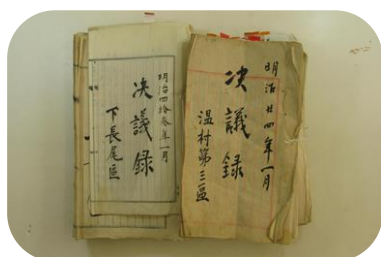 明治廿四年一月
決議録
温村第三區
明治四拾参年一月
決議録
下長尾區